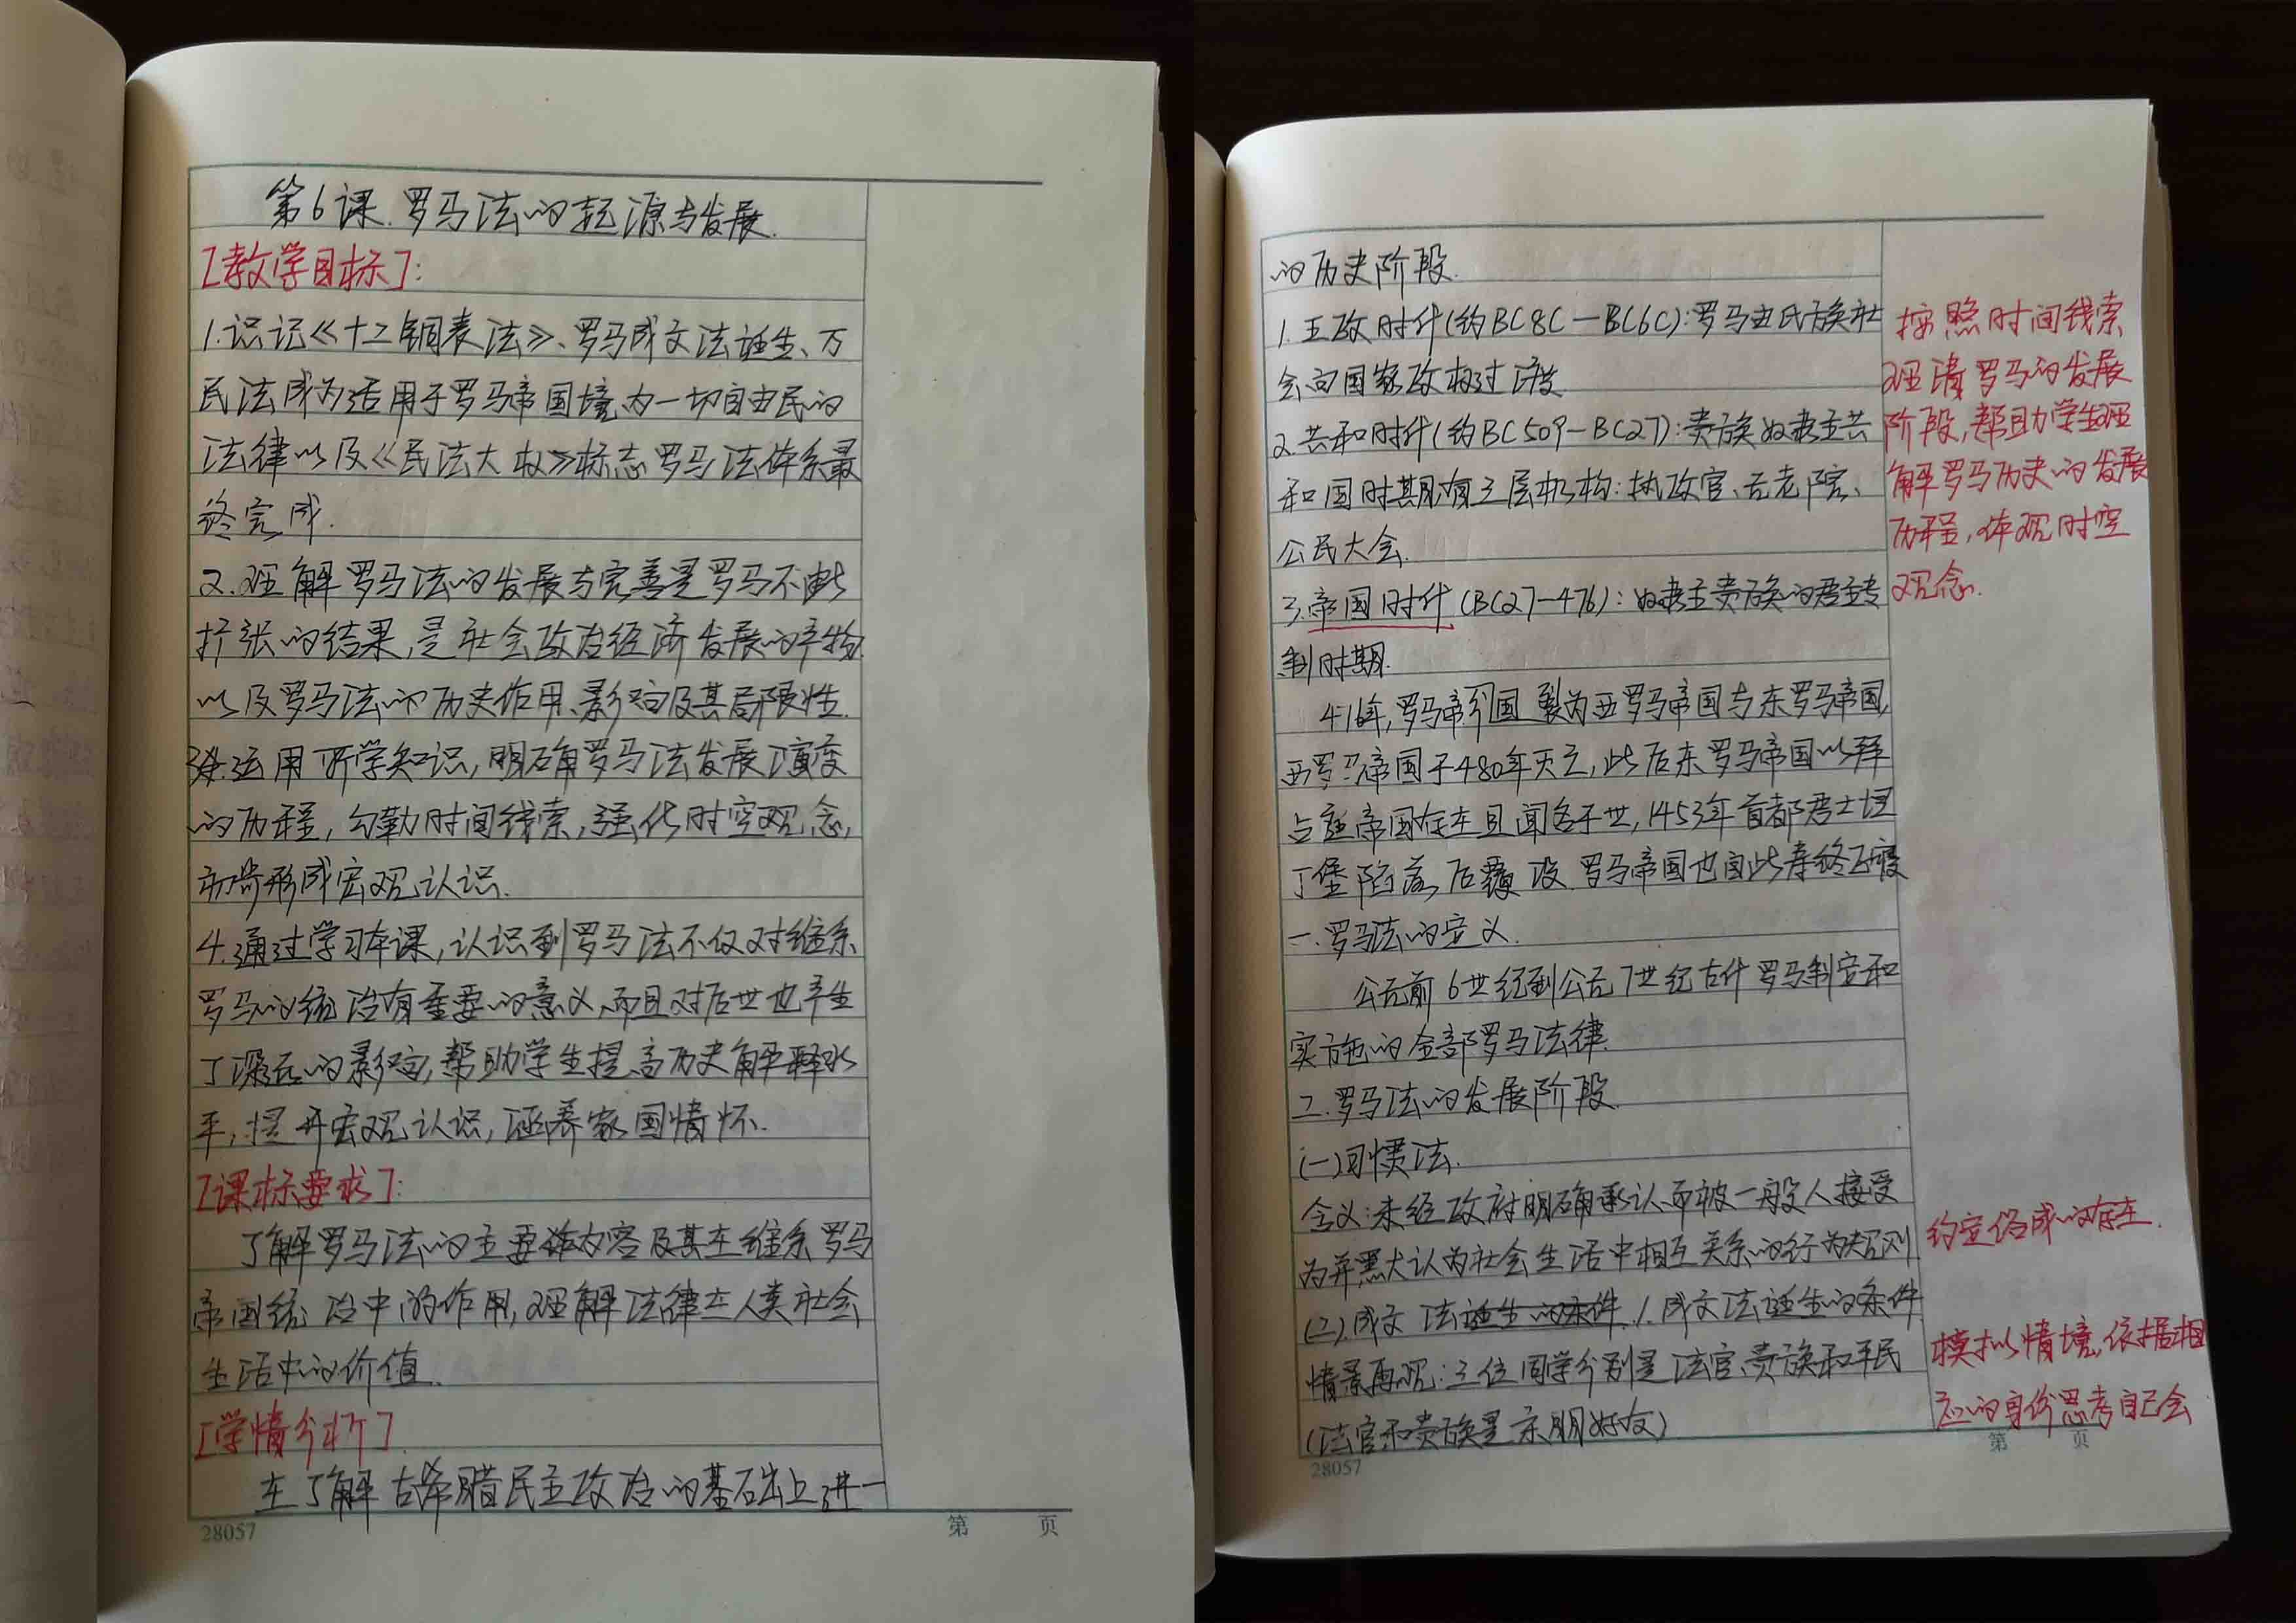 第6课.罗马法的起源与发展.
[教学目标]:
1.识记《十二铜表法》、罗马成文法诞生、万
民法成为适用于罗马帝国境内一切自由民的
法律以及《民法大权》标志罗马法体系最
终完成.
2.理解罗马法的发展与完善是罗马不断
扩张的结果,是社会政治经济发展的产物.
以及罗马法的历史作用、影响及其局限性.
3.运用所学知识,明确罗马法发展演变
的历程,勾勒时间线索,强化时空观念,
初步形成宏观认识.
4.通过学习本课,认识到罗马法不仅对维系
罗马的统治有重要的意义,而且对后世也产生
了深远的影响,帮助学生提高历史解释水
平,提升宏观认识,涵养家国情怀.
[课标要求]:
了解罗马法的主要内容及其在维系罗马
帝国统治中的作用,理解法律在人类社会
生活中的价值.
[学情分析].
在了解古希腊民主政治的基础上进一
28057
第 页
的历史阶段.
1.王政时代(约BC8C—BC6C):罗马由氏族社
会向国家政权过渡
2.共和时代(约BC509-BC27):贵族奴隶主共
和国时期有三层机构:执政官、元老院、
公民大会.
3.帝国时代(BC27-476):奴隶主贵族的君主专
制时期.
416年,罗马帝国分裂为西罗马帝国与东罗马帝国,
西罗马帝国于480年灭亡,此后东罗马帝国以拜
占庭帝国存在且闻名于世,1453年首都君士坦
丁堡陷落后覆没.罗马帝国也自此寿终正寝
一.罗马法的定义.
公元前6世纪到公元7世纪古代罗马制定和
实施的全部罗马法律.
二.罗马法的发展阶段.
(一)习惯法.
含义:未经政府明确承认而被一般人接受
为并默认为社会生活中相互关系的行为规则
(二).成文法诞生的条件.1.成文法诞生的条件
情景再现:三位同学分别是法官、贵族和平民
(法官和贵族是亲朋好友)
按照时间线索
理清罗马的发展
阶段,帮助学生理
解罗马历史的发展
历程,体现时空
观念.
约定俗成的存在.
模拟情境,依据相
应的身份思考自己会
28057
第 页